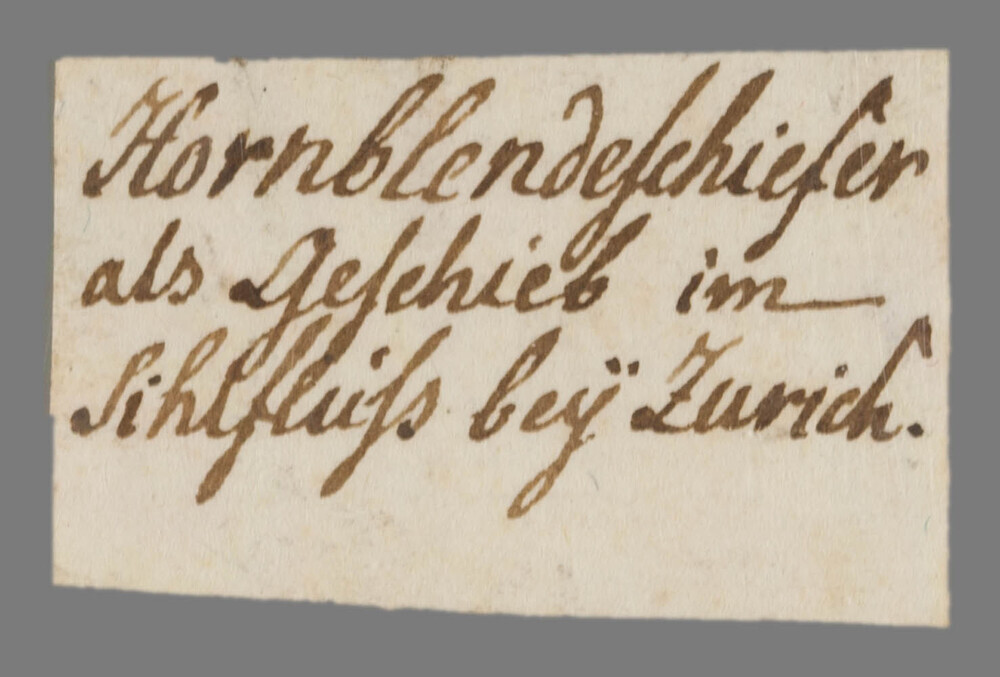 Hornblendeſchiefer
als Geſchieb im
Sihlfluſs beÿ Zurich.